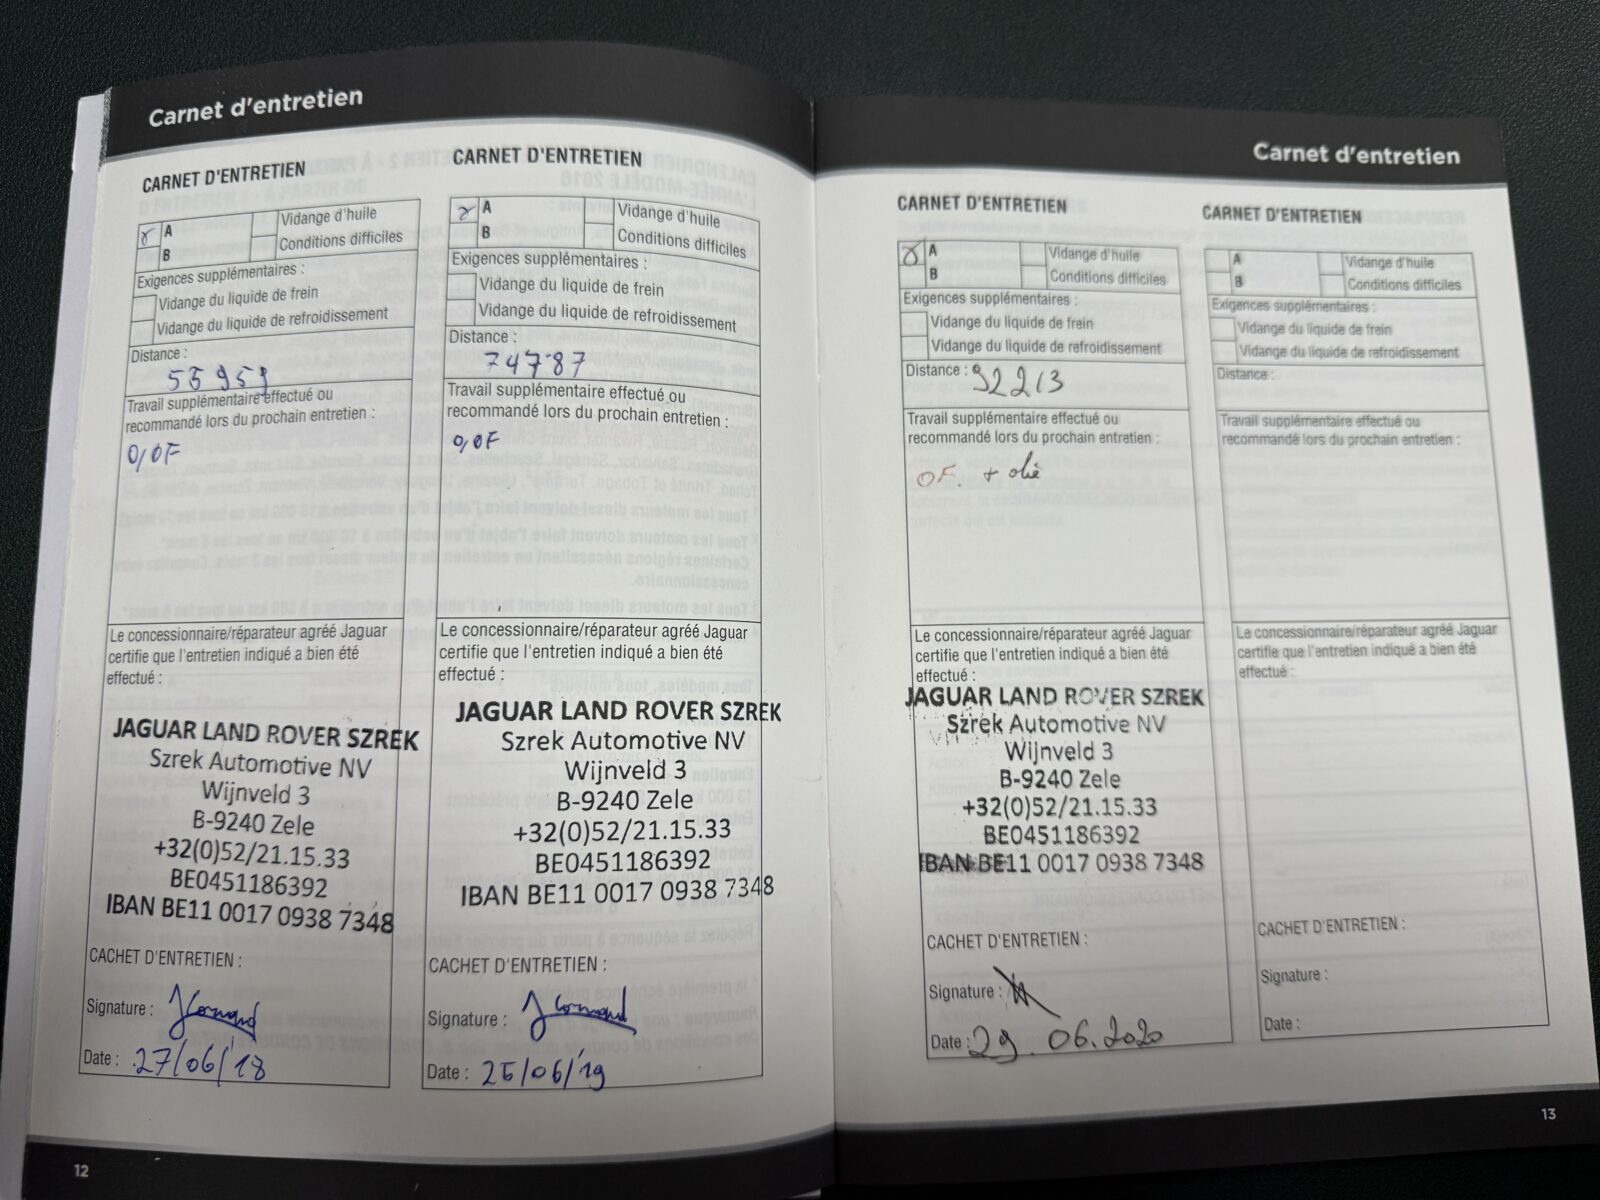 Carnet d'entretien
CARNET D'ENTRETIEN
A
B
Vidange d'huile
Conditions difficiles
Exigences supplémentaires :
Vidange du liquide de frein
Vidange du liquide de refroidissement
Distance :
55959
Travail supplémentaire effectué ou
recommandé lors du prochain entretien :
O, OF
Le concessionnaire/réparateur agréé Jaguar
certifie que l'entretien indiqué a bien été
effectué :
JAGUAR LAND ROVER SZREK
Szrek Automotive NV
Wijnveld 3
B-9240 Zele
+32(0)52/21.15.33
BE0451186392
IBAN BE11 0017 0938 7348
CACHET D'ENTRETIEN :
Signature :
Date : 27/06/'18
CARNET D'ENTRETIEN
A
B
Vidange d'huile
Conditions difficiles
Exigences supplémentaires :
Vidange du liquide de frein
Vidange du liquide de refroidissement
Distance :
74787
Travail supplémentaire effectué ou
recommandé lors du prochain entretien :
O, OF
Le concessionnaire/réparateur agréé Jaguar
certifie que l'entretien indiqué a bien été
effectué :
JAGUAR LAND ROVER SZREK
Szrek Automotive NV
Wijnveld 3
B-9240 Zele
+32(0)52/21.15.33
BE0451186392
IBAN BE11 0017 0938 7348
CACHET D'ENTRETIEN :
Signature :
Date : 25/06/'19
12
Carnet d'entretien
CARNET D'ENTRETIEN
A
B
Vidange d'huile
Conditions difficiles
Exigences supplémentaires :
Vidange du liquide de frein
Vidange du liquide de refroidissement
Distance : 92213
Travail supplémentaire effectué ou
recommandé lors du prochain entretien :
OF. + olie
Le concessionnaire/réparateur agréé Jaguar
certifie que l'entretien indiqué a bien été
effectué :
JAGUAR LAND ROVER SZREK
Szrek Automotive NV
Wijnveld 3
B-9240 Zele
+32(0)52/21.15.33
BE0451186392
IBAN BE11 0017 0938 7348
CACHET D'ENTRETIEN :
Signature :
Date : 29.06.2020
CARNET D'ENTRETIEN
A
B
Vidange d'huile
Conditions difficiles
Exigences supplémentaires :
Vidange du liquide de frein
Vidange du liquide de refroidissement
Distance :
Travail supplémentaire effectué ou
recommandé lors du prochain entretien :
Le concessionnaire/réparateur agréé Jaguar
certifie que l'entretien indiqué a bien été
effectué :
CACHET D'ENTRETIEN :
Signature :
Date :
13